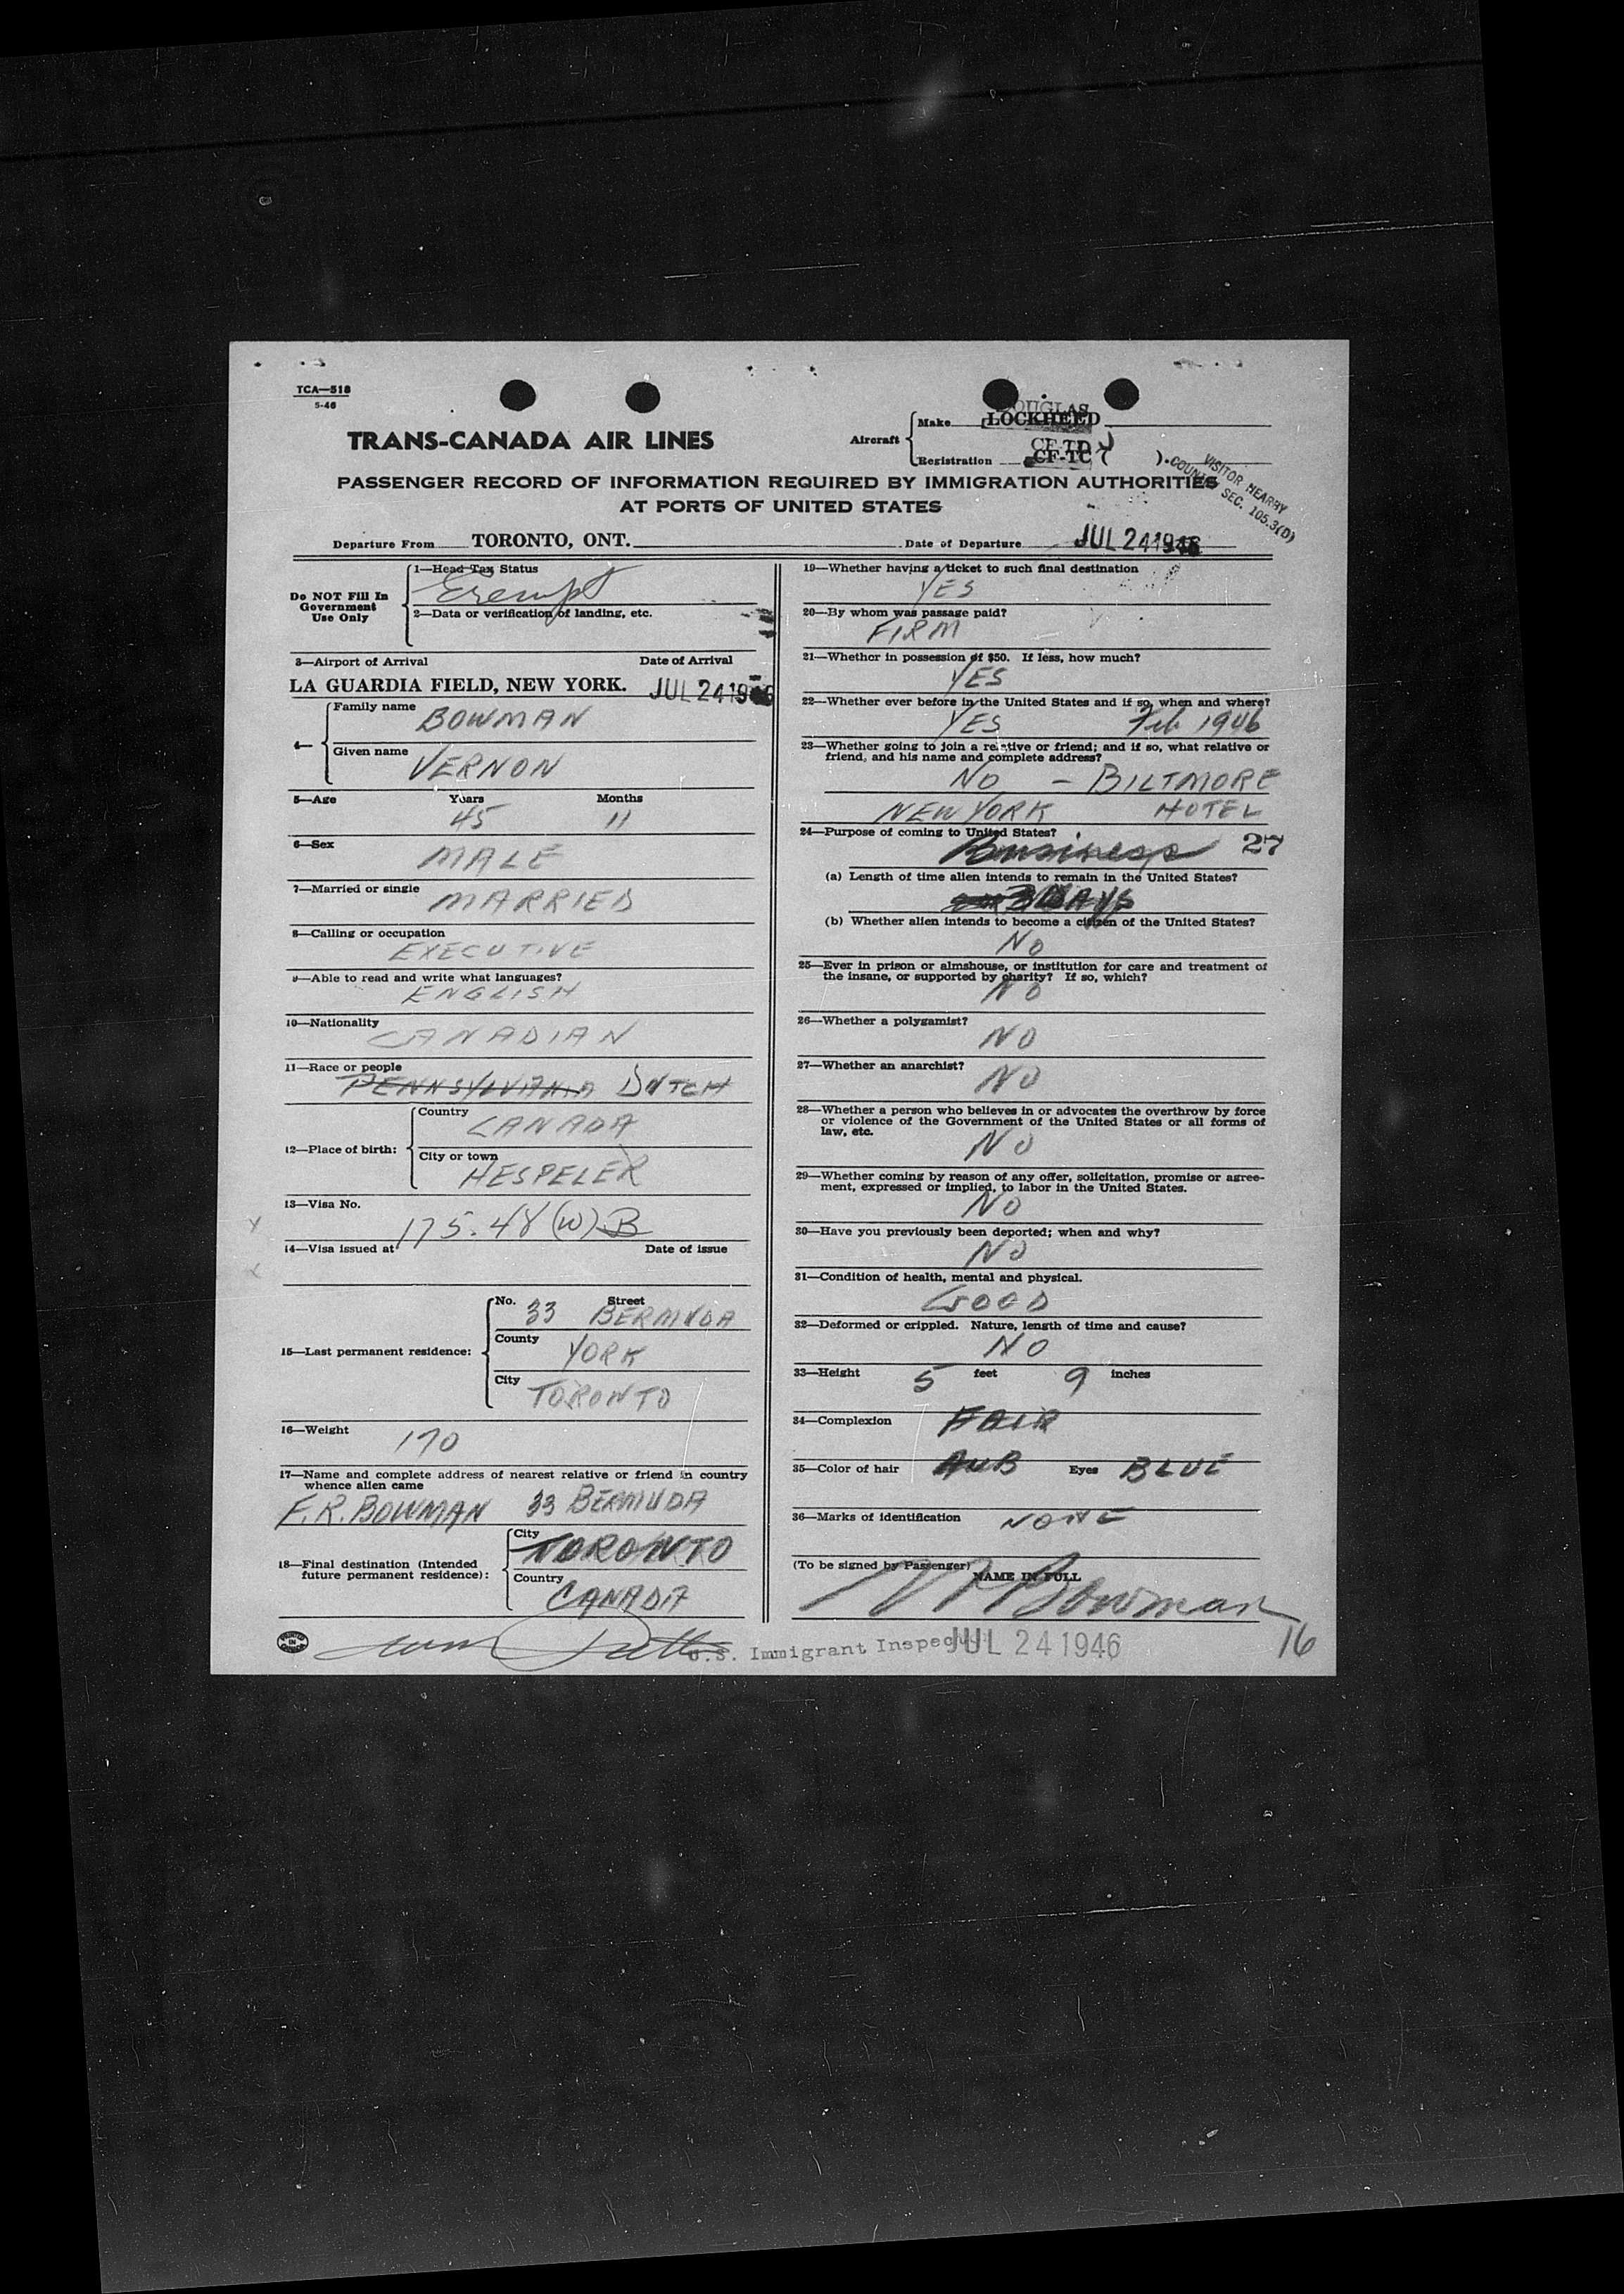 TCA—518
5-46
TRANS-CANADA AIR LINES
Aircraft
Make DOUGLAS
LOCKHEED
CF-TD
Registration CF-TC ( ).
VISITOR NEARBY
COUNTRY SEC. 105.3(D)
PASSENGER RECORD OF INFORMATION REQUIRED BY IMMIGRATION AUTHORITIES
AT PORTS OF UNITED STATES
Departure From TORONTO, ONT. Date of Departure JUL 24 1946
Do NOT Fill In
Government
Use Only
1—Head Tax Status
Exempt
2—Data or verification of landing, etc.
3—Airport of Arrival Date of Arrival
LA GUARDIA FIELD, NEW YORK. JUL 24 1946
4—
Family name
BOWMAN
Given name
VERNON
5—Age Years Months
45 11
6—Sex
MALE
7—Married or single
MARRIED
8—Calling or occupation
EXECUTIVE
9—Able to read and write what languages?
ENGLISH
10—Nationality
CANADIAN
11—Race or people
PENNSYLVANIA DUTCH
12—Place of birth:
Country
CANADA
City or town
HESPELER
13—Visa No.
175.48 (W) B
14—Visa issued at Date of issue
15—Last permanent residence:
No. Street
33 BERMUDA
County
YORK
City
TORONTO
16—Weight
170
17—Name and complete address of nearest relative or friend in country
whence alien came
F.R. BOWMAN 33 BERMUDA
18—Final destination (Intended
future permanent residence):
City
TORONTO
Country
CANADA
PRINTED IN CANADA
19—Whether having a ticket to such final destination
YES
20—By whom was passage paid?
FIRM
21—Whether in possession of $50. If less, how much?
YES
22—Whether ever before in the United States and if so, when and where?
YES Feb 1946
23—Whether going to join a relative or friend; and if so, what relative or
friend, and his name and complete address?
NO — BILTMORE
NEW YORK HOTEL
24—Purpose of coming to United States?
Business 27
(a) Length of time alien intends to remain in the United States?
3 DAYS
(b) Whether alien intends to become a citizen of the United States?
NO
25—Ever in prison or almshouse, or institution for care and treatment of
the insane, or supported by charity? If so, which?
NO
26—Whether a polygamist?
NO
27—Whether an anarchist?
NO
28—Whether a person who believes in or advocates the overthrow by force
or violence of the Government of the United States or all forms of
law, etc.
NO
29—Whether coming by reason of any offer, solicitation, promise or agree-
ment, expressed or implied, to labor in the United States.
NO
30—Have you previously been deported; when and why?
NO
31—Condition of health, mental and physical.
GOOD
32—Deformed or crippled. Nature, length of time and cause?
NO
33—Height 5 feet 9 inches
34—Complexion FAIR
35—Color of hair AUB Eyes BLUE
36—Marks of identification NONE
(To be signed by Passenger)
NAME IN FULL
Bowman
U.S. Immigrant Inspector JUL 24 1946
16